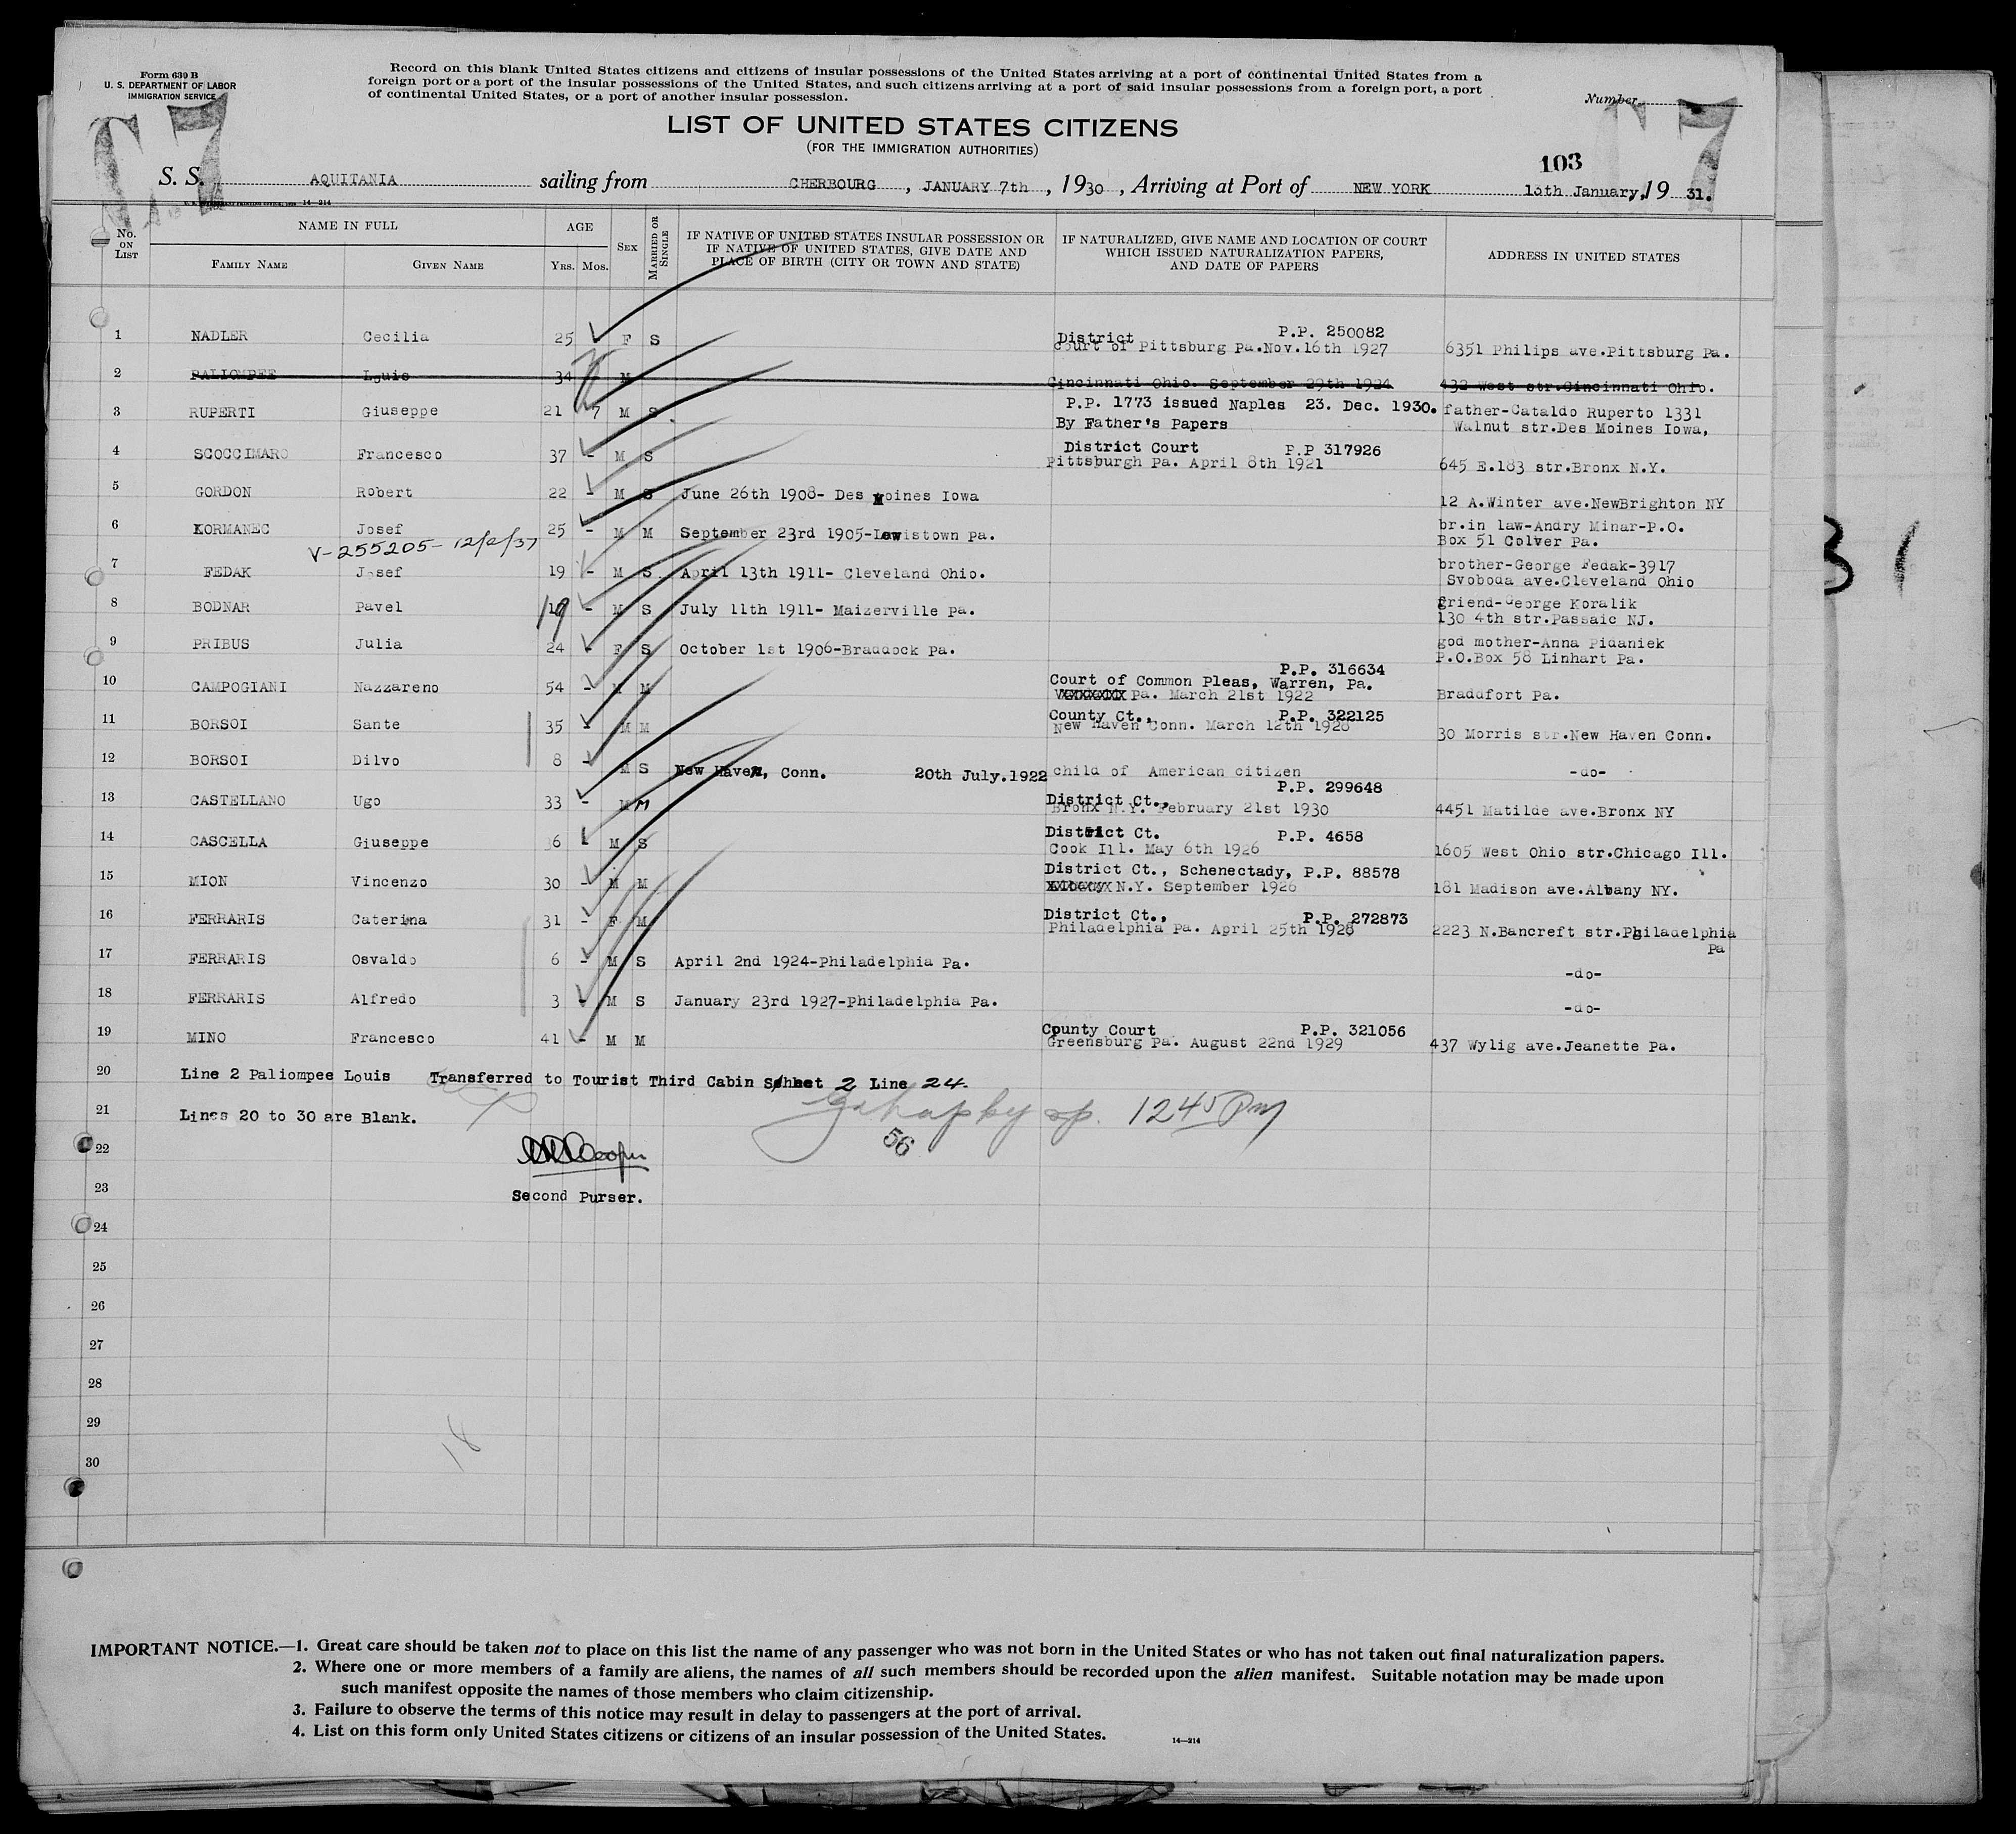 Form 639 B
U. S. DEPARTMENT OF LABOR
IMMIGRATION SERVICE
Record on this blank United States citizens and citizens of insular possessions of the United States arriving at a port of continental United States from a
foreign port or a port of the insular possessions of the United States, and such citizens arriving at a port of said insular possessions from a foreign port, a port
of continental United States, or a port of another insular possession.
Number
LIST OF UNITED STATES CITIZENS
(FOR THE IMMIGRATION AUTHORITIES)
103
S. S. AQUITANIA sailing from CHERBOURG, JANUARY 7th, 1930, Arriving at Port of NEW YORK January, 19 31.
14—214
No. ON LIST
NAME IN FULL
FAMILY NAME
GIVEN NAME
AGE
YRS. MOS.
SEX
MARRIED OR SINGLE
IF NATIVE OF UNITED STATES INSULAR POSSESSION OR
IF NATIVE OF UNITED STATES, GIVE DATE AND
PLACE OF BIRTH (CITY OR TOWN AND STATE)
IF NATURALIZED, GIVE NAME AND LOCATION OF COURT
WHICH ISSUED NATURALIZATION PAPERS,
AND DATE OF PAPERS
ADDRESS IN UNITED STATES
1 NADLER Cecilia 25 F S District P.P. 250082
Court of Pittsburg Pa.Nov.16th 1927 6351 Philips ave.Pittsburg Pa.
2 PALIOMPEE Louis 34 - M Cincinnati Ohio. September 29th 1924 432 West str.Cincinnati Ohio.
3 RUPERTI Giuseppe 21 7 M S P.P. 1773 issued Naples 23. Dec. 1930. father-Cataldo Ruperto 1331
By Father's Papers Walnut str.Des Moines Iowa,
4 SCOCCIMARO Francesco 37 - M S District Court P.P 317926
Pittsburgh Pa. April 8th 1921 645 E.183 str.Bronx N.Y.
5 GORDON Robert 22 - M S June 26th 1908- Des Moines Iowa 12 A.Winter ave.NewBrighton NY
6 KORMANEC Josef 25 - M M September 23rd 1905-Lewistown Pa. br.in law-Andry Minar-P.O.
Box 51 Colver Pa.
V-255205- 12/2/37
7 FEDAK Josef 19 - M S April 13th 1911- Cleveland Ohio. brother-George Fedak-3917
Svoboda ave.Cleveland Ohio
8 BODNAR Pavel 19 - M S July 11th 1911- Maizerville Pa. friend-George Koralik
130 4th str.Passaic NJ.
9 PRIBUS Julia 24 - F S October 1st 1906-Braddock Pa. god mother-Anna Pidaniek
P.O.Box 58 Linhart Pa.
10 CAMPOGIANI Nazzareno 54 - M M P.P. 316634
Court of Common Pleas, Warren, Pa.
Pa. March 21st 1922 Braddfort Pa.
11 BORSOI Sante 35 - M M County Ct., P.P. 322125
New Haven Conn. March 12th 1928 30 Morris str.New Haven Conn.
12 BORSOI Dilvo 8 - M S New Haven, Conn. 20th July.1922 child of American citizen -do-
13 CASTELLANO Ugo 33 - M M District Ct., P.P. 299648
Bronx N.Y. February 21st 1930 4451 Matilde ave.Bronx NY
14 CASCELLA Giuseppe 36 - M S District Ct. P.P. 4658
Cook Ill. May 6th 1926 1605 West Ohio str.Chicago Ill.
15 MION Vincenzo 30 - M M District Ct., Schenectady, P.P. 88578
N.Y. September 1926 181 Madison ave.Albany NY.
16 FERRARIS Caterina 31 - F M District Ct., P.P. 272873
Philadelphia Pa. April 25th 1928 2223 N.Bancreft str.Philadelphia
Pa
17 FERRARIS Osvaldo 6 - M S April 2nd 1924-Philadelphia Pa. -do-
18 FERRARIS Alfredo 3 - M S January 23rd 1927-Philadelphia Pa. -do-
19 MINO Francesco 41 - M M County Court P.P. 321056
Greensburg Pa. August 22nd 1929 437 Wylig ave.Jeanette Pa.
20 Line 2 Paliompee Louis Transferred to Tourist Third Cabin Sheet 2 Line 24.
21 Lines 20 to 30 are Blank. 12 45 Pm
56
22
Second Purser.
23
24
25
26
27
28
29
30
18
IMPORTANT NOTICE.—1. Great care should be taken not to place on this list the name of any passenger who was not born in the United States or who has not taken out final naturalization papers.
2. Where one or more members of a family are aliens, the names of all such members should be recorded upon the alien manifest. Suitable notation may be made upon
such manifest opposite the names of those members who claim citizenship.
3. Failure to observe the terms of this notice may result in delay to passengers at the port of arrival.
4. List on this form only United States citizens or citizens of an insular possession of the United States.
14—214